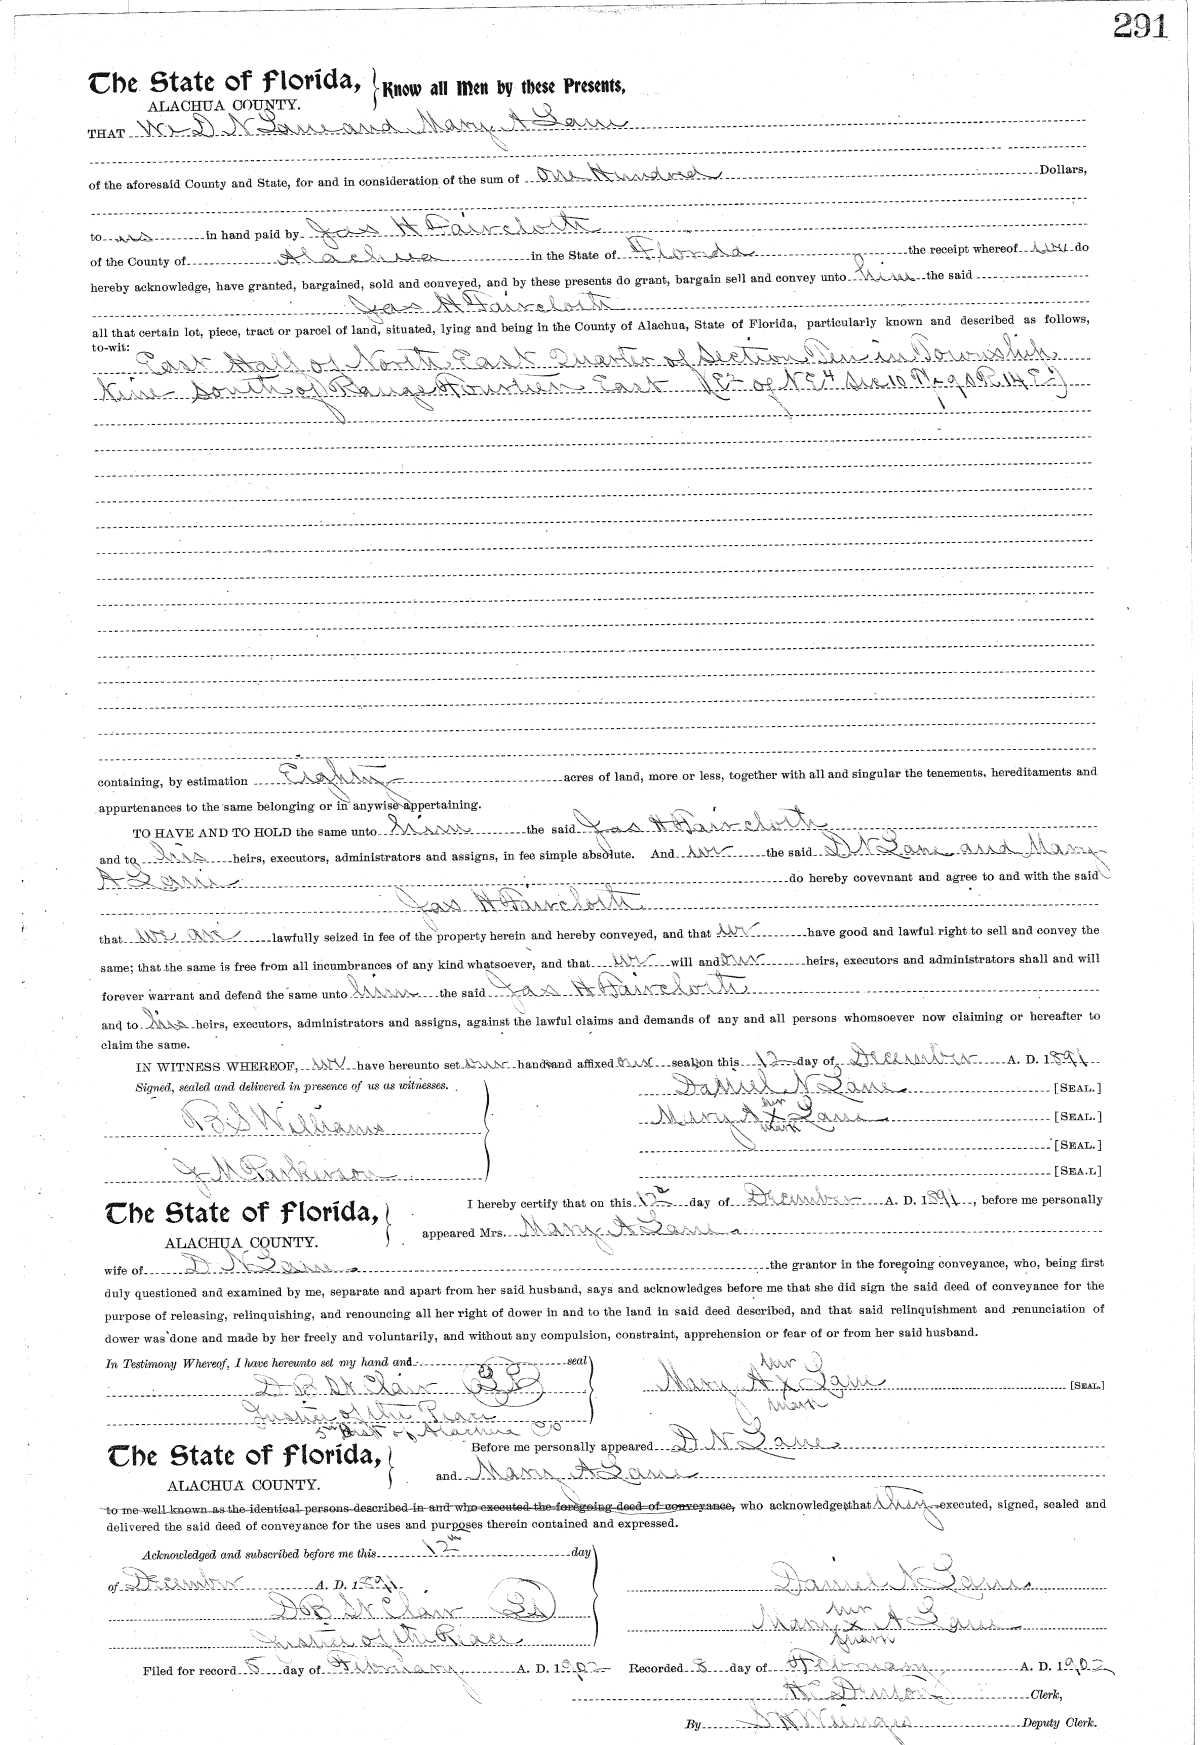 291
The State of Florida, } Know all Men by these Presents,
ALACHUA COUNTY.
THAT We D N Lane and Mary A Lane
of the aforesaid County and State, for and in consideration of the sum of One Hundred Dollars,
to us in hand paid by Jas H Faircloth
of the County of Alachua in the State of Florida the receipt whereof we do
hereby acknowledge, have granted, bargained, sold and conveyed, and by these presents do grant, bargain sell and convey unto him the said
Jas H Faircloth
all that certain lot, piece, tract or parcel of land, situated, lying and being in the County of Alachua, State of Florida, particularly known and described as follows,
to-wit:
East Half of North East Quarter of Section Ten in Township
Nine South of Range Fourteen East (E2 of NE4 Sec 10 Tp 9 S R 14 E)
containing, by estimation Eighty acres of land, more or less, together with all and singular the tenements, hereditaments and
appurtenances to the same belonging or in anywise appertaining.
TO HAVE AND TO HOLD the same unto him the said Jas H Faircloth
and to his heirs, executors, administrators and assigns, in fee simple absolute. And we the said D N Lane and Mary
A Lane do hereby covevnant and agree to and with the said
Jas H Faircloth
that we are lawfully seized in fee of the property herein and hereby conveyed, and that we have good and lawful right to sell and convey the
same; that the same is free from all incumbrances of any kind whatsoever, and that we will and our heirs, executors and administrators shall and will
forever warrant and defend the same unto him the said Jas H Faircloth
and to his heirs, executors, administrators and assigns, against the lawful claims and demands of any and all persons whomsoever now claiming or hereafter to
claim the same.
IN WITNESS WHEREOF, we have hereunto set our hands and affixed our seals on this 12 day of December A. D. 1891
Signed, sealed and delivered in presence of us as witnesses.
Daniel N Lane [SEAL.]
B S Williams
Mary A her x mark Lane [SEAL.]
[SEAL.]
J M Parkinson
[SEA.L]
The State of Florida,
ALACHUA COUNTY.
I hereby certify that on this 12th day of December A. D. 1891, before me personally
appeared Mrs. Mary A Lane
wife of D N Lane the grantor in the foregoing conveyance, who, being first
duly questioned and examined by me, separate and apart from her said husband, says and acknowledges before me that she did sign the said deed of conveyance for the
purpose of releasing, relinquishing, and renouncing all her right of dower in and to the land in said deed described, and that said relinquishment and renunciation of
dower was done and made by her freely and voluntarily, and without any compulsion, constraint, apprehension or fear of or from her said husband.
In Testimony Whereof, I have hereunto set my hand and seal
D B St Clair
Justice of the Peace
5th Dist of Alachua Co
Mary A her x mark Lane [SEAL.]
The State of Florida,
ALACHUA COUNTY.
Before me personally appeared D N Lane
and Mary A Lane
to me well known as the identical persons described in and who executed the foregoing deed of conveyance, who acknowledge that they executed, signed, sealed and
delivered the said deed of conveyance for the uses and purposes therein contained and expressed.
Acknowledged and subscribed before me this 12th day
of December A. D. 1891
D B St Clair LS
Justice of the Peace
Daniel N Lane
Mary her x mark A Lane
Filed for record 8 day of February A. D. 1902 Recorded 8 day of February A. D. 1902
Clerk,
By Deputy Clerk.